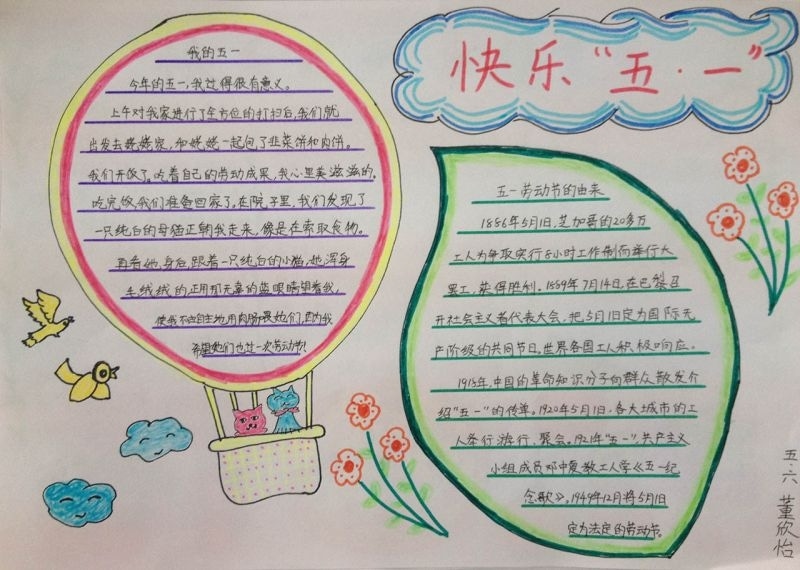 快乐“五·一”
我的五一
今年的五一,我过得很有意义。
上午对我家进行了全方位的打扫后,我们就
出发去姥姥家,和姥姥一起包了韭菜饼和肉饼。
我们开饭了。吃着自己的劳动成果,我心里美滋滋的。
吃完饭我们准备回家了。在院子里,我们发现了
一只纯白的母猫正朝我走来,像是在索取食物。
再看她,身后跟着一只纯白的小猫,他浑身
毛绒绒的,正用那无辜的蓝眼睛望着我,
使我不由自主地用肉肠喂她们,因为我
希望她们也过一次劳动节!
五一劳动节的由来
1886年5月1日,芝加哥的20多万
工人为争取实行8小时工作制而举行大
罢工,获得胜利。1889年7月14日,在巴黎召
开社会主义者代表大会,把5月1日定为国际无
产阶级的共同节日。世界各国工人积极响应。
1918年,中国的革命知识分子向群众散发介
绍“五一”的传单。1920年5月1日,各大城市的工
人举行游行、聚会。1921年“五一”,共产主义
小组成员邓中夏教工人学《五一纪
念歌》。1949年12月将5月1日
定为法定的劳动节。
五·六 董欣怡